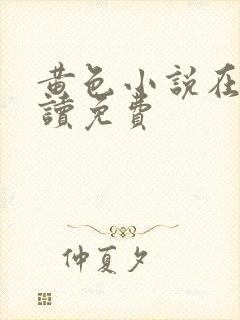 黄色小說在
讀免費
仲夏夕